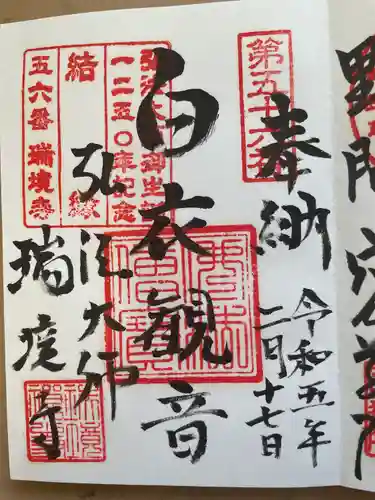 第五十六番
奉納
令和五年
二月十七日
白衣観音
弘法大師
瑞境寺
弘法大師御生誕
一二五〇年記念
結縁
五六番 瑞境寺
佛法僧寶